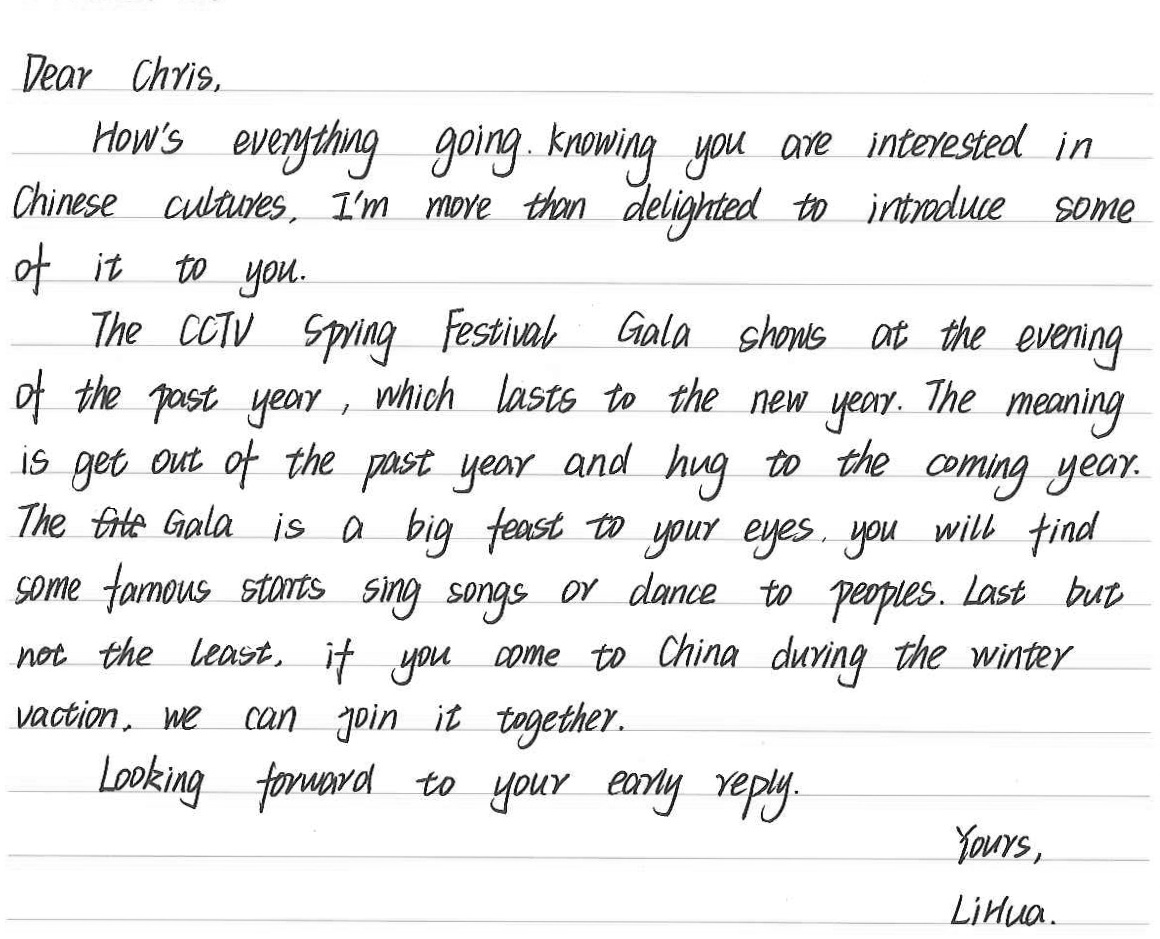 Dear Chris,
How's everything going. knowing you are interested in
Chinese cultures, I'm more than delighted to introduce some
of it to you.
The CCTV Spring Festival Gala shows at the evening
of the past year, which lasts to the new year. The meaning
is get out of the past year and hug to the coming year.
The Gala is a big feast to your eyes, you will find
some famous starts sing songs or dance to peoples. Last but
not the least, if you come to China during the winter
vaction, we can join it together.
Looking forward to your early reply.
Yours,
LiHua.